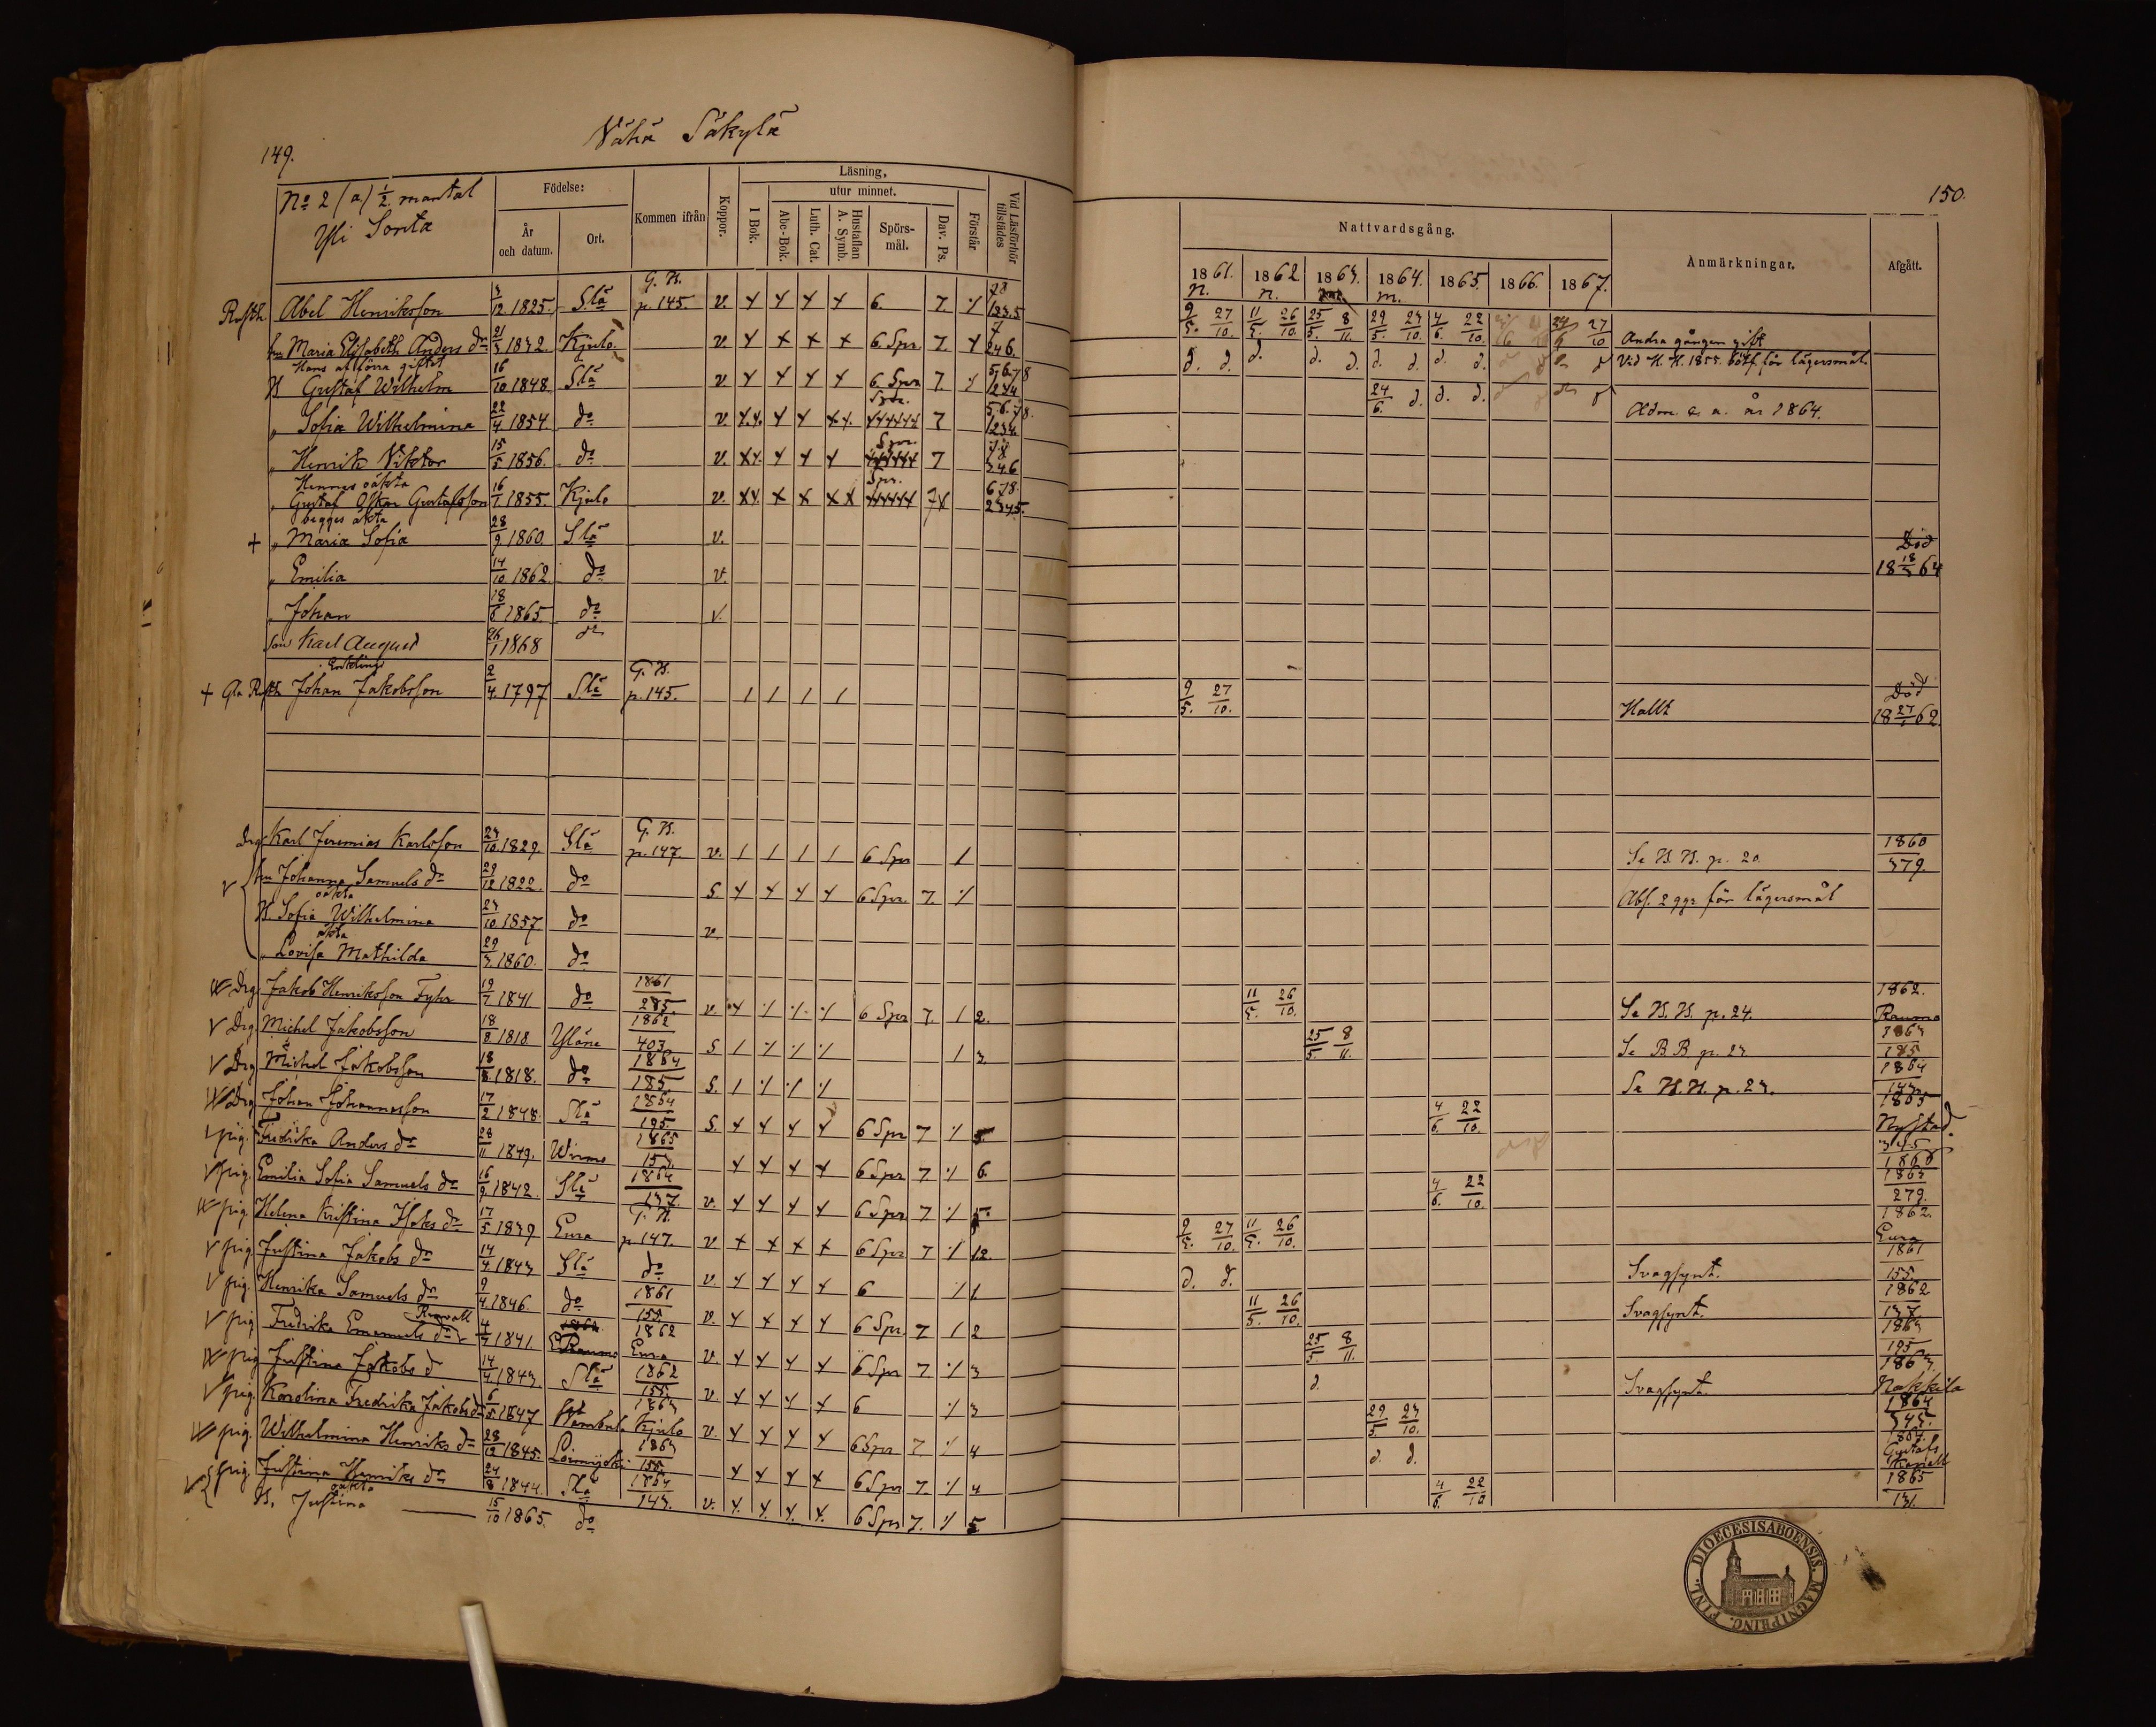 149.
Vähä Säkylä
No 2 (a) 1/2 mantal
Yli Sonta
Födelse:
År och datum.
Ort.
Kommen ifrån
Koppor.
Läsning,
utur minnet.
I Bok.
Abc-Bok.
Luth. Cat.
Hustaflan A. Symb.
Spörs-mål.
Dav. Ps.
Förstår
Vid Läsförhör tillstädes
Rusth. Abel Henriksson 3/12 1825. Slä G. K. p. 145. v. 6. 7.
hu Maria Elisabeth Anders dr 21/3 1832. Kjulo v. 6 Spr. 7. 246.
Hans af förra giftet
B Gustaf Wilhelm 16/10 1848. Slä v. 6 Spr 7. 5.6.7.8 1234
" Sofia Wilhelmina 22/4 1854. do v. 7 5.6.7.8. 1234
" Henrik Viktor 15/5 1856. do v. Spr. 7 7.8 346
Hennes oäkta
" Gustaf Oskar Gustafsson 16/1 1855. Kjulo v. Spr. 7 678. 2345.
begges äkta
+ " Maria Sofia 28/9 1860. Slä v.
" Emilia 14/10 1862. do v.
" Johan 18/8 1865. do v.
son Karl August 26/1 1868 do
Enkling
+ Gla Rusth. Johan Jakobsson 2/4 1797 Slä G. K. p. 145.
Drg Karl Jeremias Karlsson 23/10 1829. Slä G. K. p. 147. v. 6 Spr
hu Johanna Samuels dr 29/12 1822. do S. 6 Spr. 7.
oäkta
B. Sofia Wilhelmina 23/10 1857. do v
äkta
" Lovisa Mathilda 29/3 1860. do
Drg Jakob Henriksson Fyhr 19/7 1841 do 1861 285. v. 6 Spr 7. 2.
Drg. Michel Jakobsson 18/8 1818 Yläne 1862 403. S 3
Drg Michel Jakobsson 18/8 1818. do 1864 185. S.
Drg Johan Johannesson 17/2 1848. Slä 1864 195 S. 6 Spr 7 5
pig. Fredrika Anders dr 28/11 1849. Wirmo 1865 153. 6 Spr 7 6
pig. Emilia Sofia Samuels dr 16/9 1842. Slä 1864 137 v. 6 Spr 7 5
pig. Helena Kristina Isaks dr 17/5 1839 Eura G. K. p. 147. v 6 Spr 7 12.
pig Justina Jakobs dr 14/4 1843 Slä do v. 6 1
pig. Henrika Samuels dr 9/4 1846. do 1861 155. v. 6 Spr. 7 2
pig Fredrika Emanuels dr 4/7 1841. Eura 1862 v. 6 Spr 7 3
pig Justina Jakobs d 14/4 1843. Slä 1862 155 v. 6 3
pig. Karolina Fredrika Jakobs dr 6/5 1847 Wambula 1863 Kjulo v. 6 Spr 7 4
pig. Wilhelmina Henriks dr 28/12 1845. Loimijoki 1863 155. 6 Spr 7 4
pig. Justina Henriks dr 24/8 1844. Slä 1864 143. v. 6 Spr 7. 5
oäkta
B. Justina 15/10 1865. do
150.
Nattvardsgång.
Anmärkningar.
Afgått.
1861. 1862 1863. 1864. 1865. 1866. 1867.
9/5. 27/10. 11/5. 26/10. 25/5. 8/11. 29/5. 23/10. 4/6. 22/10. 27/10 Andra gången gift
d. d. d. d. d. d. d. d. d. Vid H. H. 1855. bötf. för lägersmål.
24/6. d. d. d. Adm. a. a. år 1864.
Död 18 18/3 64
9/5. 27/10. Halt Död 18 27/1 62.
Se K. K. p. 20. 1860 379.
Abs. 2 ggr för lägersmål
11/5. 26/10. Se K. K. p. 24. 1862. Raumo
25/5. 8/11. Se B. B p. 23 1863 185
Se K. K. p. 23. 1864 143.
4/6. 22/10. 1865 Nystad.
345 1866
4/6. 22/10. 1865 279.
9/5. 27/10. 11/5. 26/10. 1862. Eura
d. d. Svagsynt. 1861 155.
11/5. 26/10. Svagsynt. 1862 137
25/5. 8/11. 1863 195
d. Svagsynt. 1863. Nakkila
29/5. 23/10. 1864 345.
d. d. 1864. Gustafs
4/6. 22/10 1865 131.
FINL. DIOECESIS ABOENSIS. MAGNI PRINC.